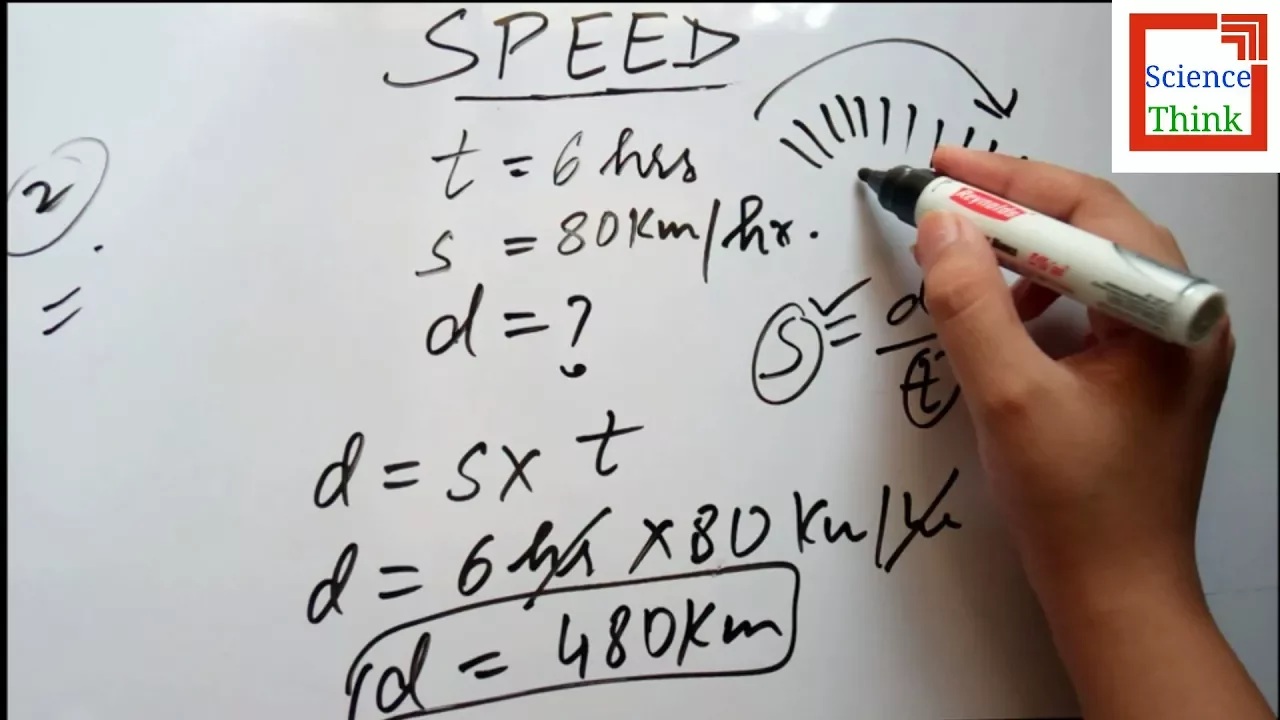 SPEED
Science
Think
2
t = 6 hrs
s = 80 Km/hr.
d = ?
s = d
t
Reynolds
d = s x t
d = 6 hr x 80 Km/hr
d = 480 Km